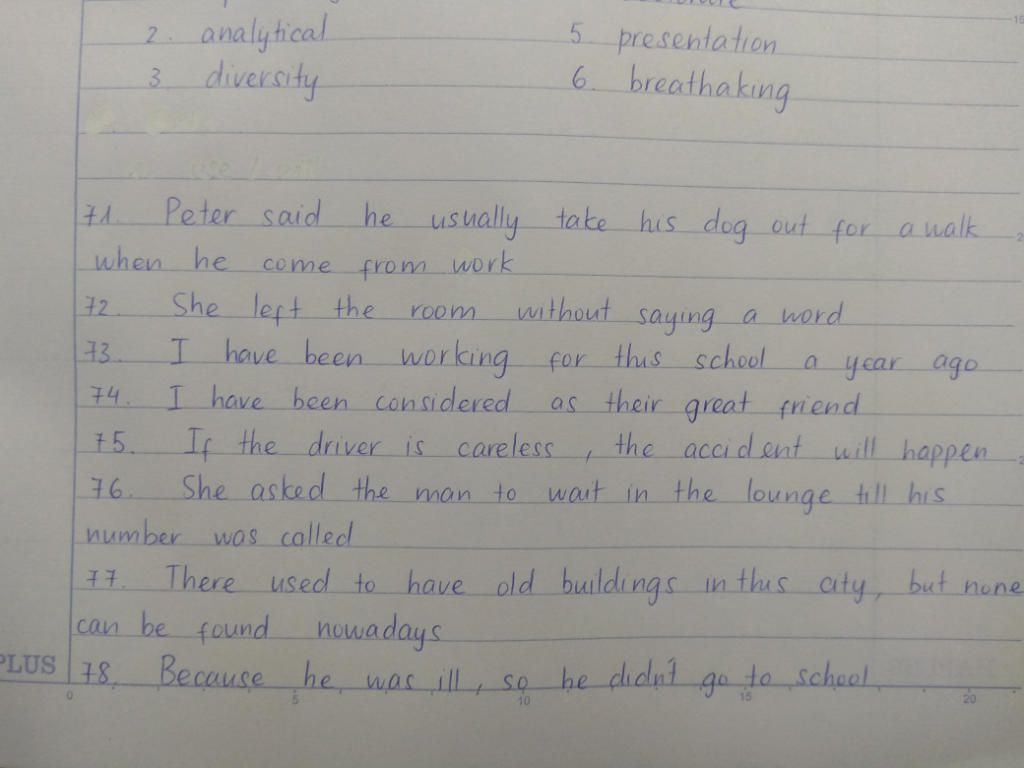 2. analytical 5. presentation
3. diversity 6. breathaking
71. Peter said he usually take his dog out for a walk
when he come from work
72. She left the room without saying a word
73. I have been working for this school a year ago
74. I have been considered as their great friend
75. If the driver is careless, the accident will happen
76. She asked the man to wait in the lounge till his
number was called
77. There used to have old buildings in this city, but none
can be found nowadays
PLUS 78. Because he was ill, so he didn't go to school
0 5 10 15 20